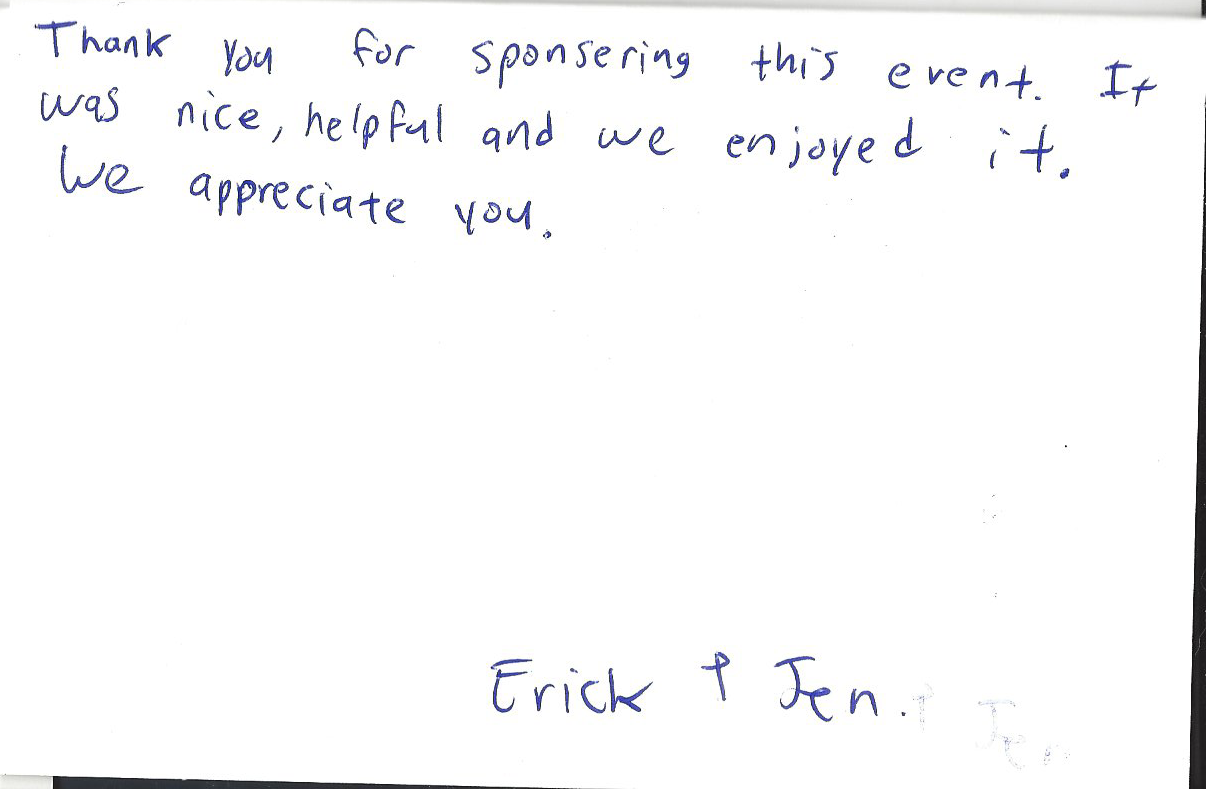 Thank you for sponsering this event. It
was nice, helpful and we enjoyed it.
We appreciate you.
Erick + Jen.
+ Jen